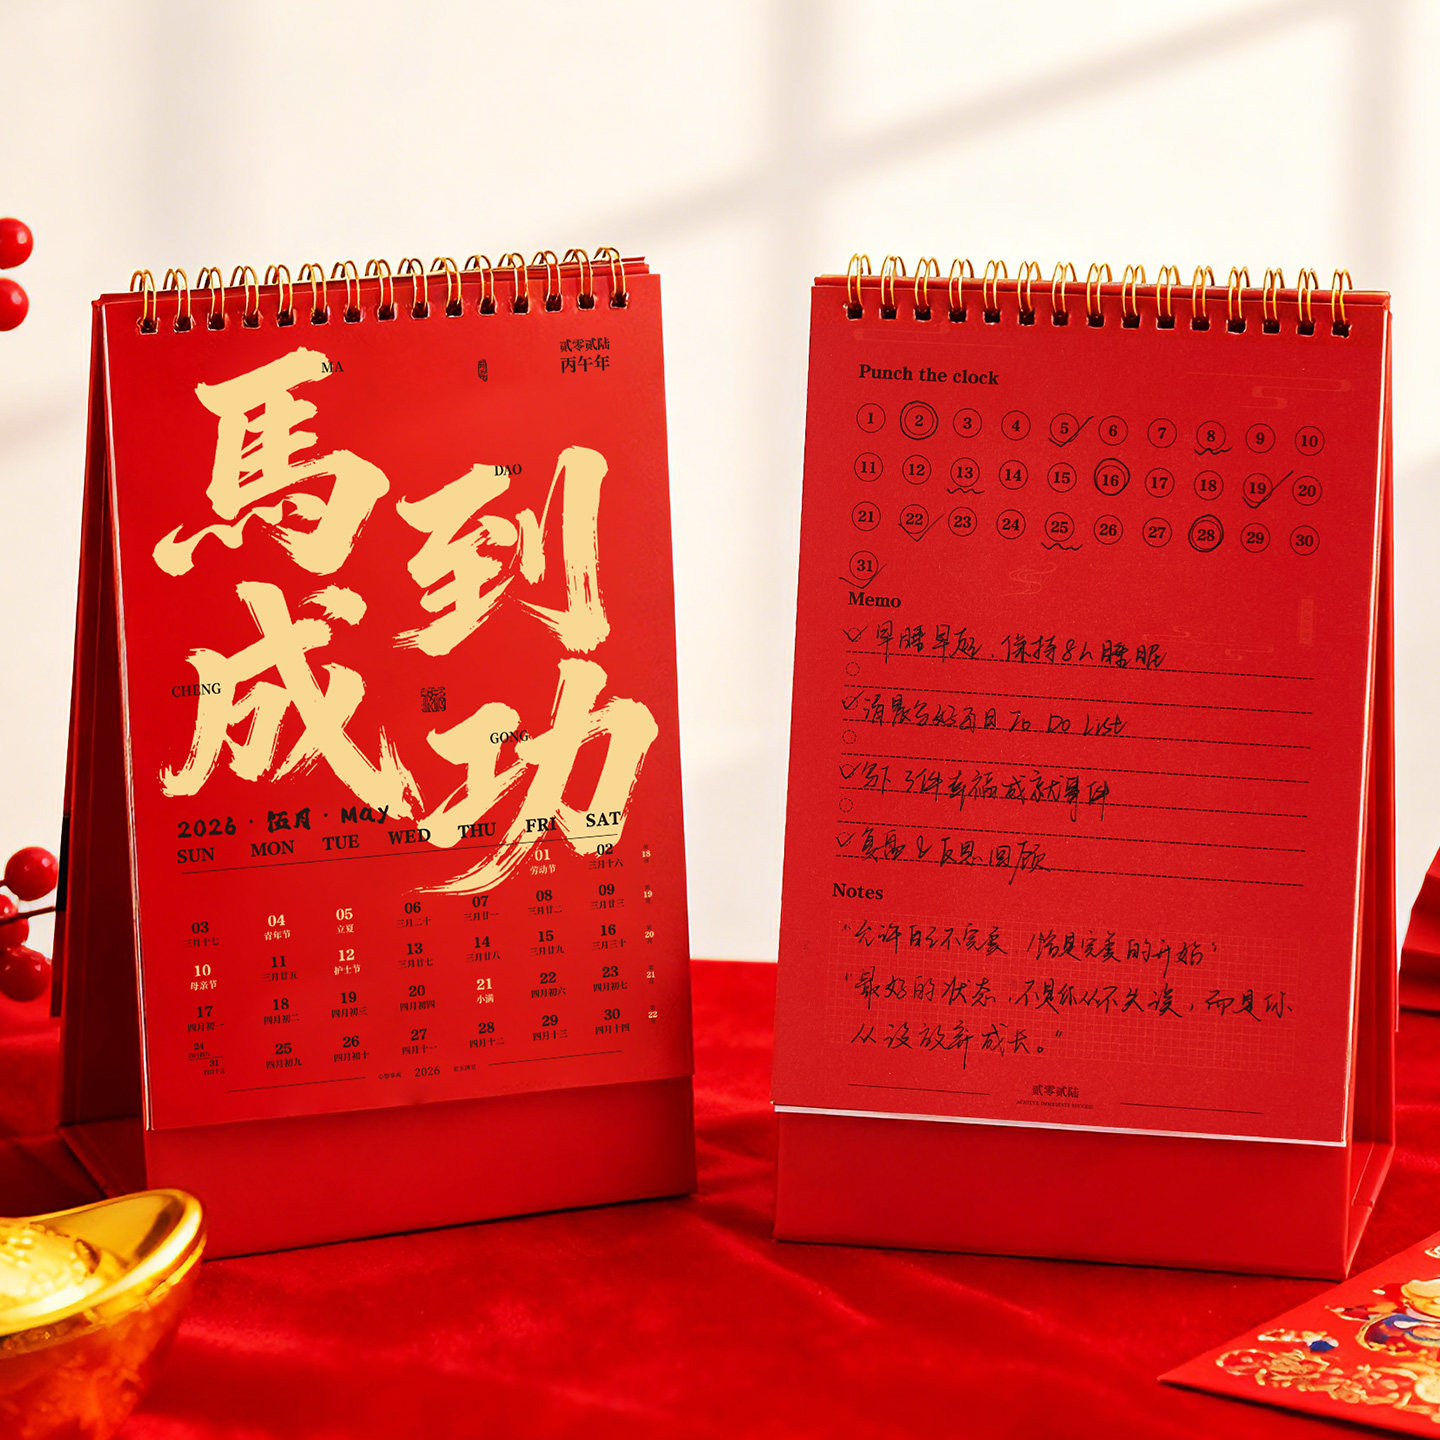 贰零贰陆
丙午年
MA
馬
DAO
到
CHENG
成
GONG
功
2026 · 伍月 · May
SUN MON TUE WED THU FRI SAT
01 02
劳动节 三月十六
18
03 04 05 06 07 08 09
三月十七 青年节 立夏 三月二十 三月廿一 三月廿二 三月廿三
19
10 11 12 13 14 15 16
母亲节 三月廿五 护士节 三月廿七 三月廿八 三月廿九 三月三十
20
17 18 19 20 21 22 23
四月初一 四月初二 四月初三 四月初四 小满 四月初六 四月初七
21
24 25 26 27 28 29 30
四月初九 四月初十 四月十一 四月十二 四月十三 四月十四
22
31
2026
Punch the clock
1 2 3 4 5 6 7 8 9 10
11 12 13 14 15 16 17 18 19 20
21 22 23 24 25 26 27 28 29 30
31
Memo
早睡早起. 保持8h睡眠
清晨写好每日 To Do List
写下3件幸福成就事件
复盘&反思回顾
Notes
"允许自己不完美, 恰是完美的开始"
"最好的状态, 不是你从不失误, 而是你
从没放弃成长。"
贰零贰陆
ACHIEVE IMMEDIATE SUCCESS